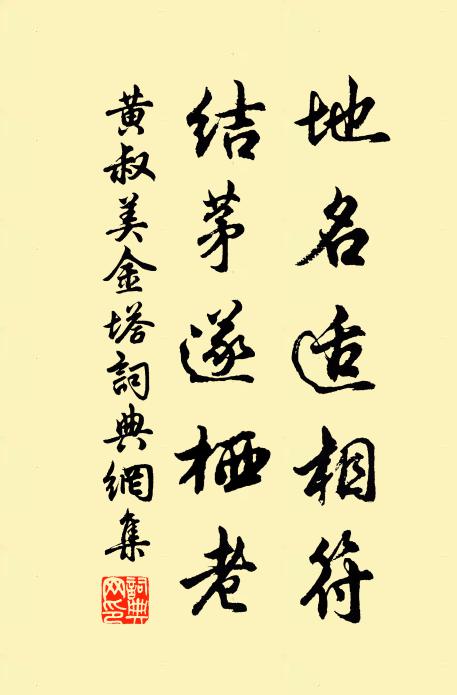 地名适相符
结茅遂栖老
黄叔美金塔詞典網集
詞典网印